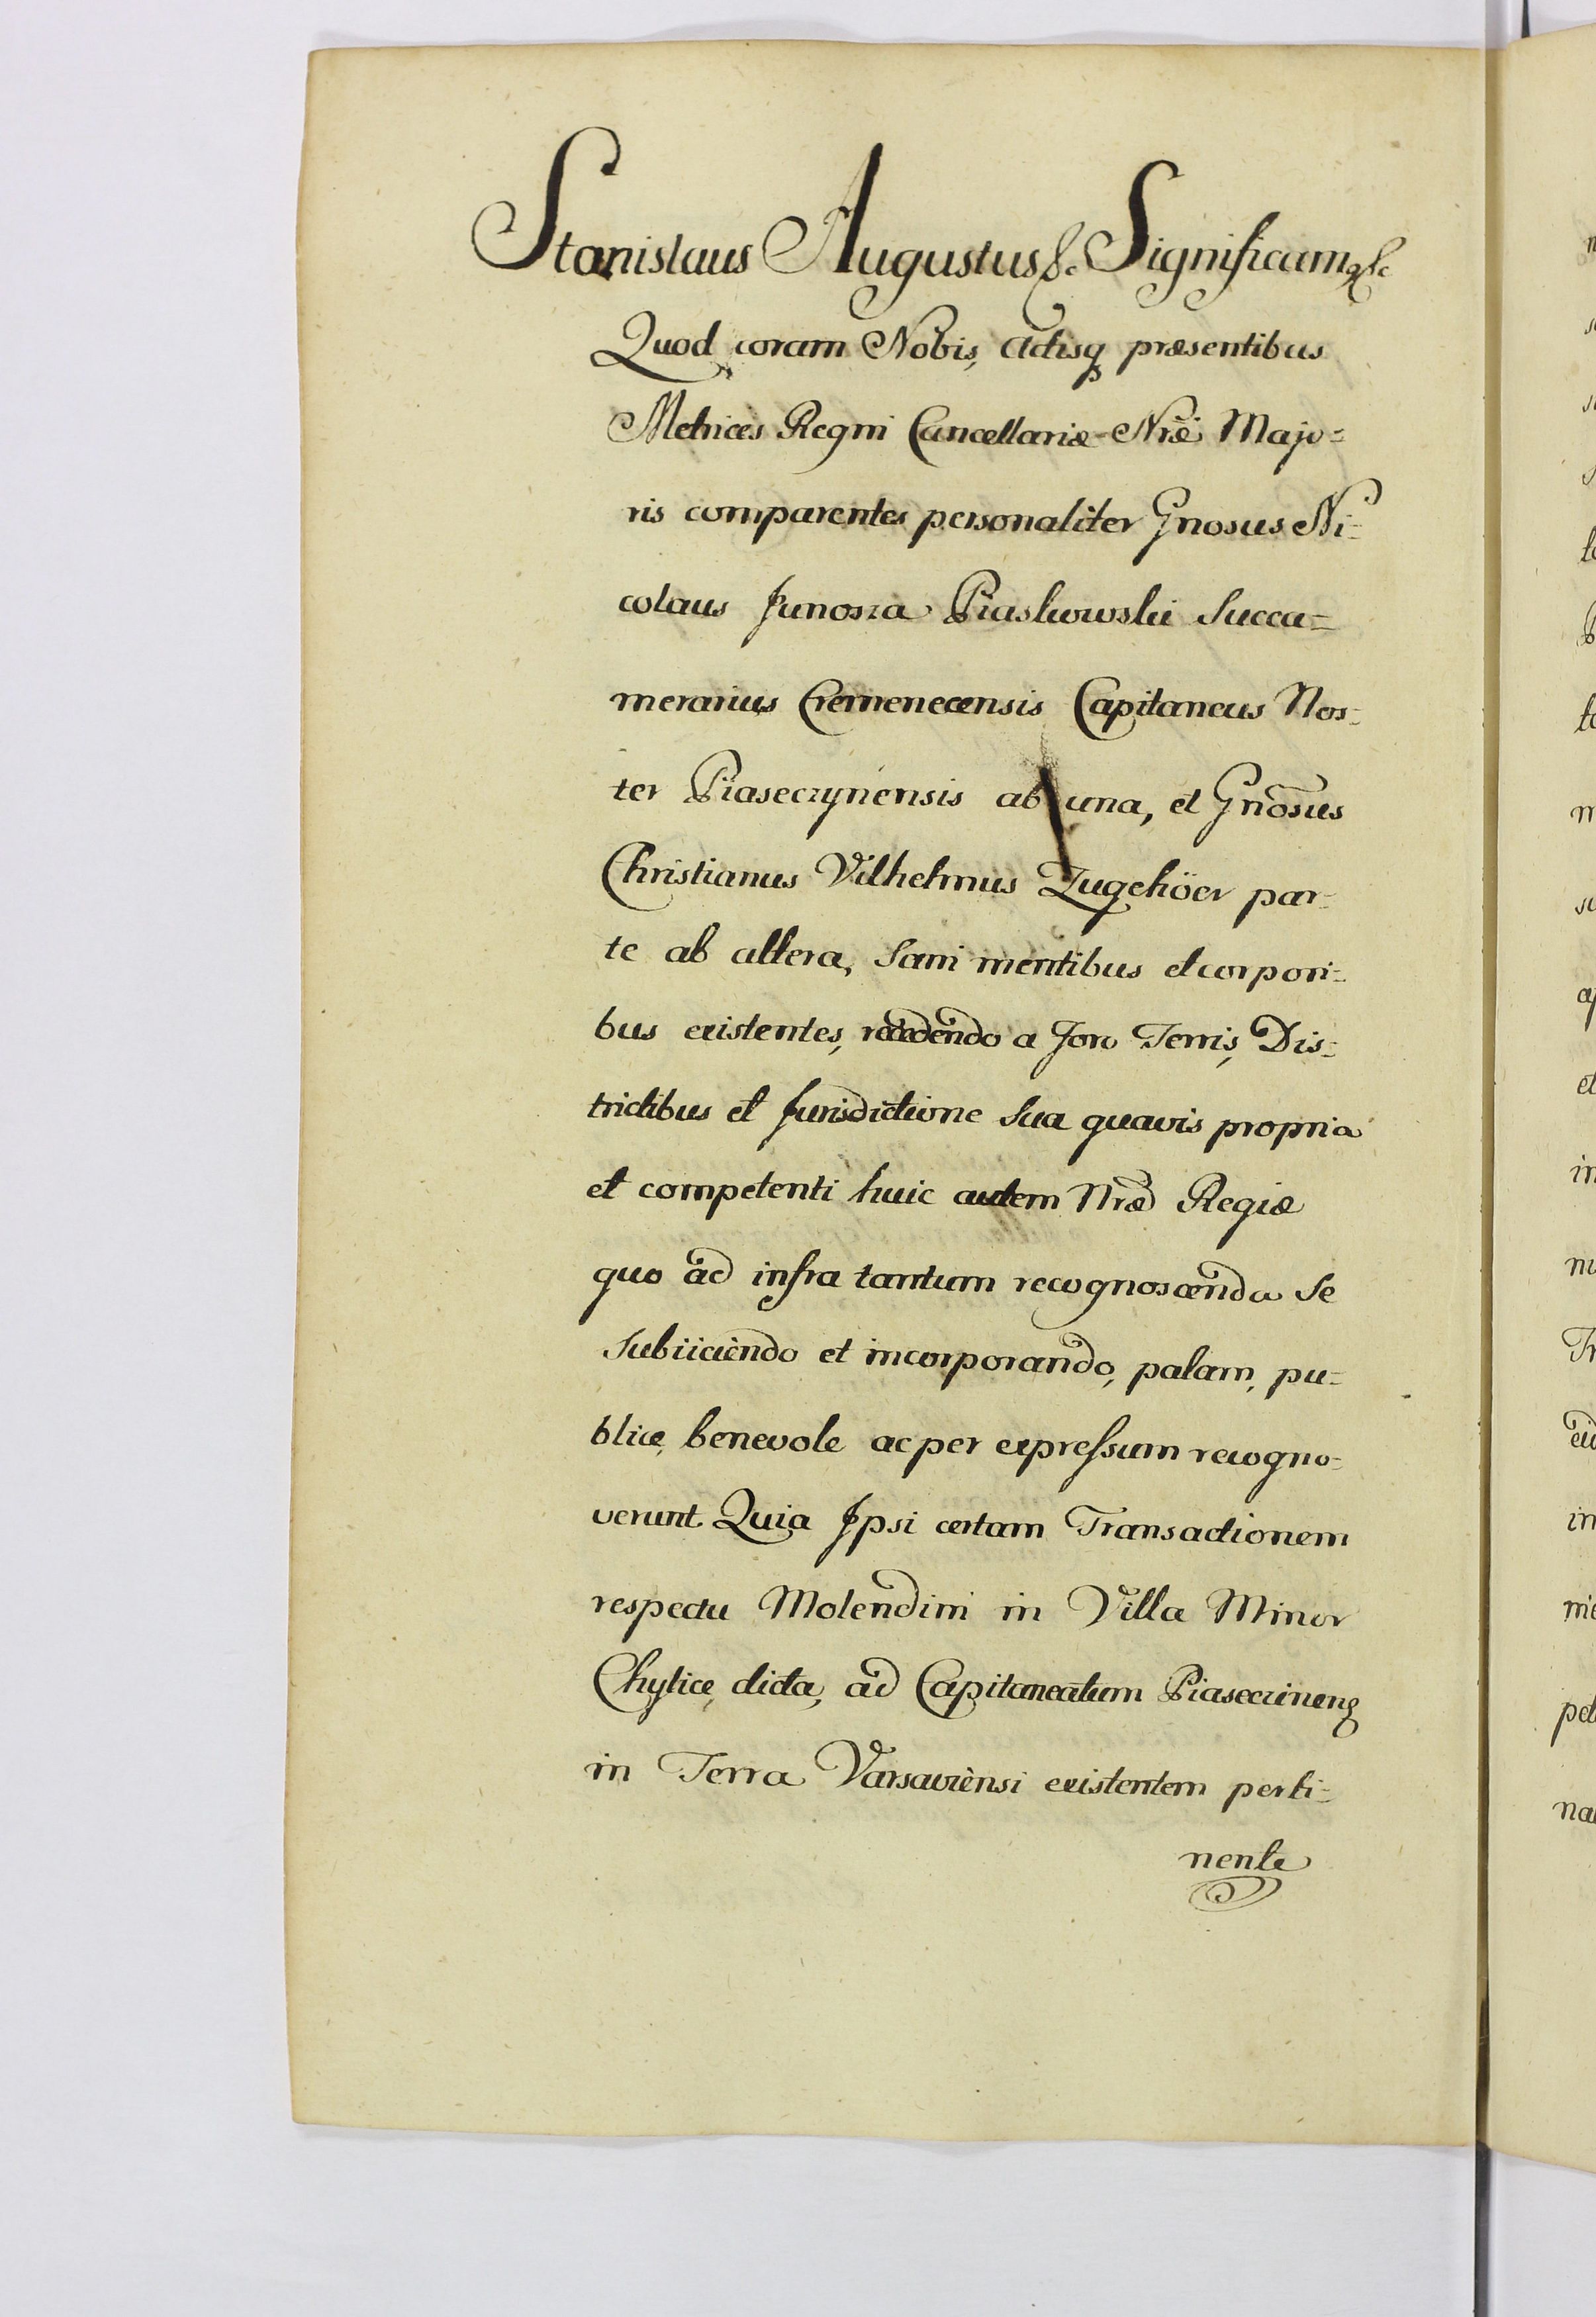 Stanislaus Augustus &c Significamꝰ &c
Quod coram Nobis, Actisq præsentibus
Metrices Regni Cancellariæ Nræ Majo=
ris comparentes personaliter Gnosus Ni=
colaus Junosza Piaskowski Succa=
merarius Cremenecensis Capitaneus Nos=
ter Piaseczynensis ab una, et Gnosus
Christianus Vilhelmus Zugehöer par=
te ab altera, Sani mentibus et corpori=
bus existentes, recedendo a Foro Terris, Dis=
trictibus et Jurisdictione Sua quavis propria
et competenti huic autem Nræ Regiæ
quo ad infra tantum recognoscenda Se
Subiiciendo et incorporando, palam, pu=
blice, benevole ac per expressum recogno=
verunt Quia Ipsi certam Transactionem
respectu Molendini in Villa Minor
Chylice, dicta, ad Capitaneatum Piaseczinens
in Terra Varsaviensi existentem perti=
nente